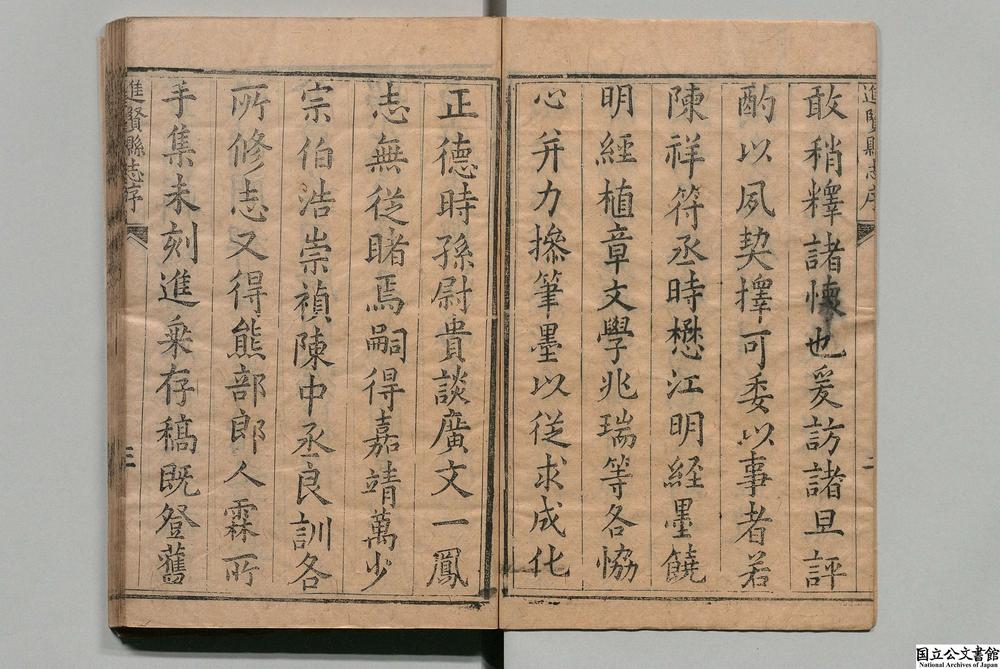 敢稍釋諸懷也爰訪諸旦評
酌以夙契擇可委以事者若
陳祥符丞時懋江明經墨饒
明經植章文學兆瑞等各恊
心并力摻筆墨以從求成化
進賢縣志序
二
正德時孫尉貴談廣文一鳳
志無從睹焉嗣得嘉靖萬少
宗伯浩崇禎陳中丞良訓各
所修志又得熊部郎人霖所
手集未刻進乗存稿既登舊
進賢縣志序
三
国立公文書館
National Archives of Japan